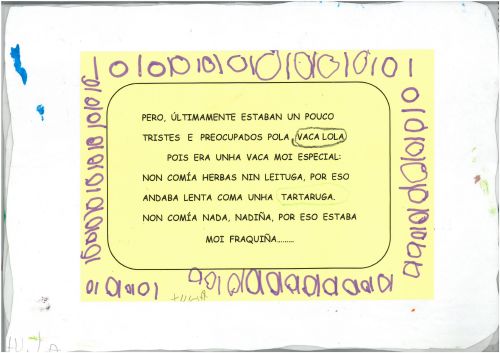 PERO, ÚLTIMAMENTE ESTABAN UN POUCO
TRISTES E PREOCUPADOS POLA VACA LOLA
POIS ERA UNHA VACA MOI ESPECIAL:
NON COMÍA HERBAS NIN LEITUGA, POR ESO
ANDABA LENTA COMA UNHA TARTARUGA.
NON COMÍA NADA, NADIÑA, POR ESO ESTABA
MOI FRAQUIÑA........